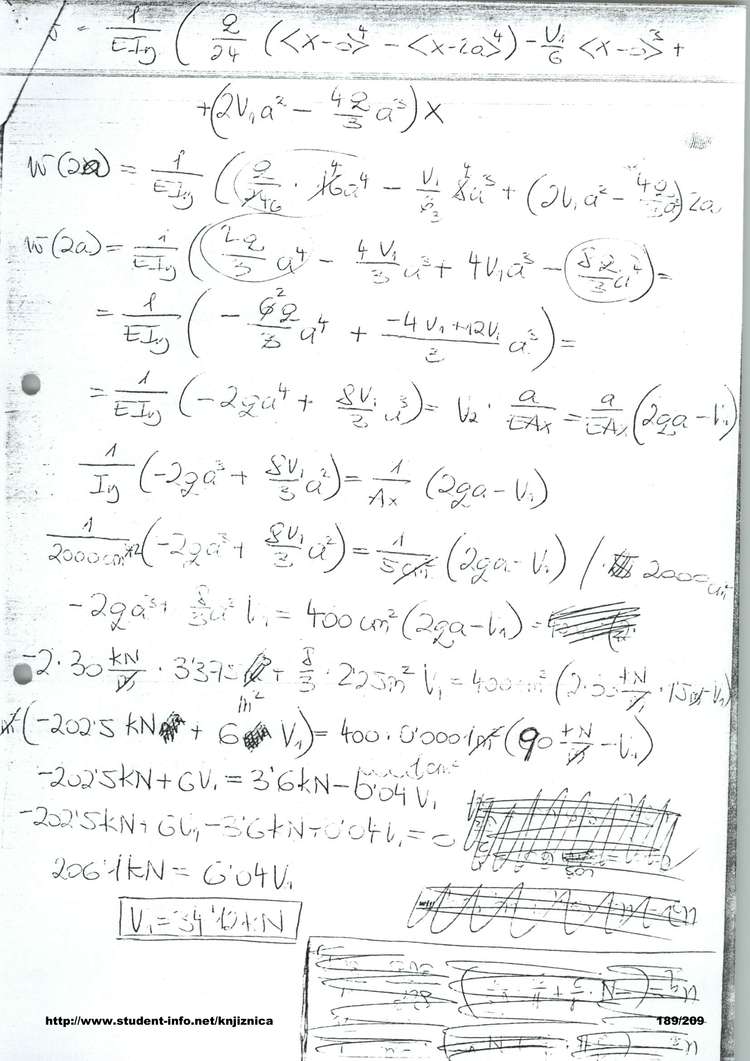 w = 1/EIy ( q/24 (<x-a>^4 - <x-2a>^4) - V1/6 <x-a>^3 +
+(2V1a^2 - 4q/3 a^3) x
w(2a) = 1/EIy ( q/246 · 16^4 a^4 - V1/6 3 8^4 a^3 + (2V1a^2 - 4q/3 a^3) 2a
w(2a) = 1/EIy ( 2q/3 a^4 - 4V1/3 a^3 + 4V1a^3 - 8q/3 a^4 ) =
= 1/EIy ( - 6^2q/3 a^4 + -4V1+12V1/3 a^3 ) =
= 1/EIy ( -2qa^4 + 8V1/3 a^3 ) = V2 · a/EAx = a/EAx (2qa - V1)
1/Iy ( -2qa^3 + 8V1/3 a^2 ) = 1/Ax (2qa - V1)
1/2000cm^2 ( -2qa^3 + 8V1/3 a^2 ) = 1/5cm (2qa - V1) / · 2000cm
-2qa^3 + 8/3 a^2 V1 = 400cm^2 (2qa - V1) =
-2·30 kN/m · 3'375 + 8/3 · 2'25m^2 V1 = 400cm^2 (2·30 kN/m · 1'5m - V1)
m^2 (-202'5 kN + 6 V1) = 400 · 0'0001m^2 (90 kN/m - V1)
-202'5kN + 6V1 = 3'6kN - 0'04V1
-202'5kN + 6V1 - 3'6kN + 0'04V1 = 0
206'1kN = 6'04V1
V1 = 34'12kN
http://www.student-info.net/knjiznica 189/209